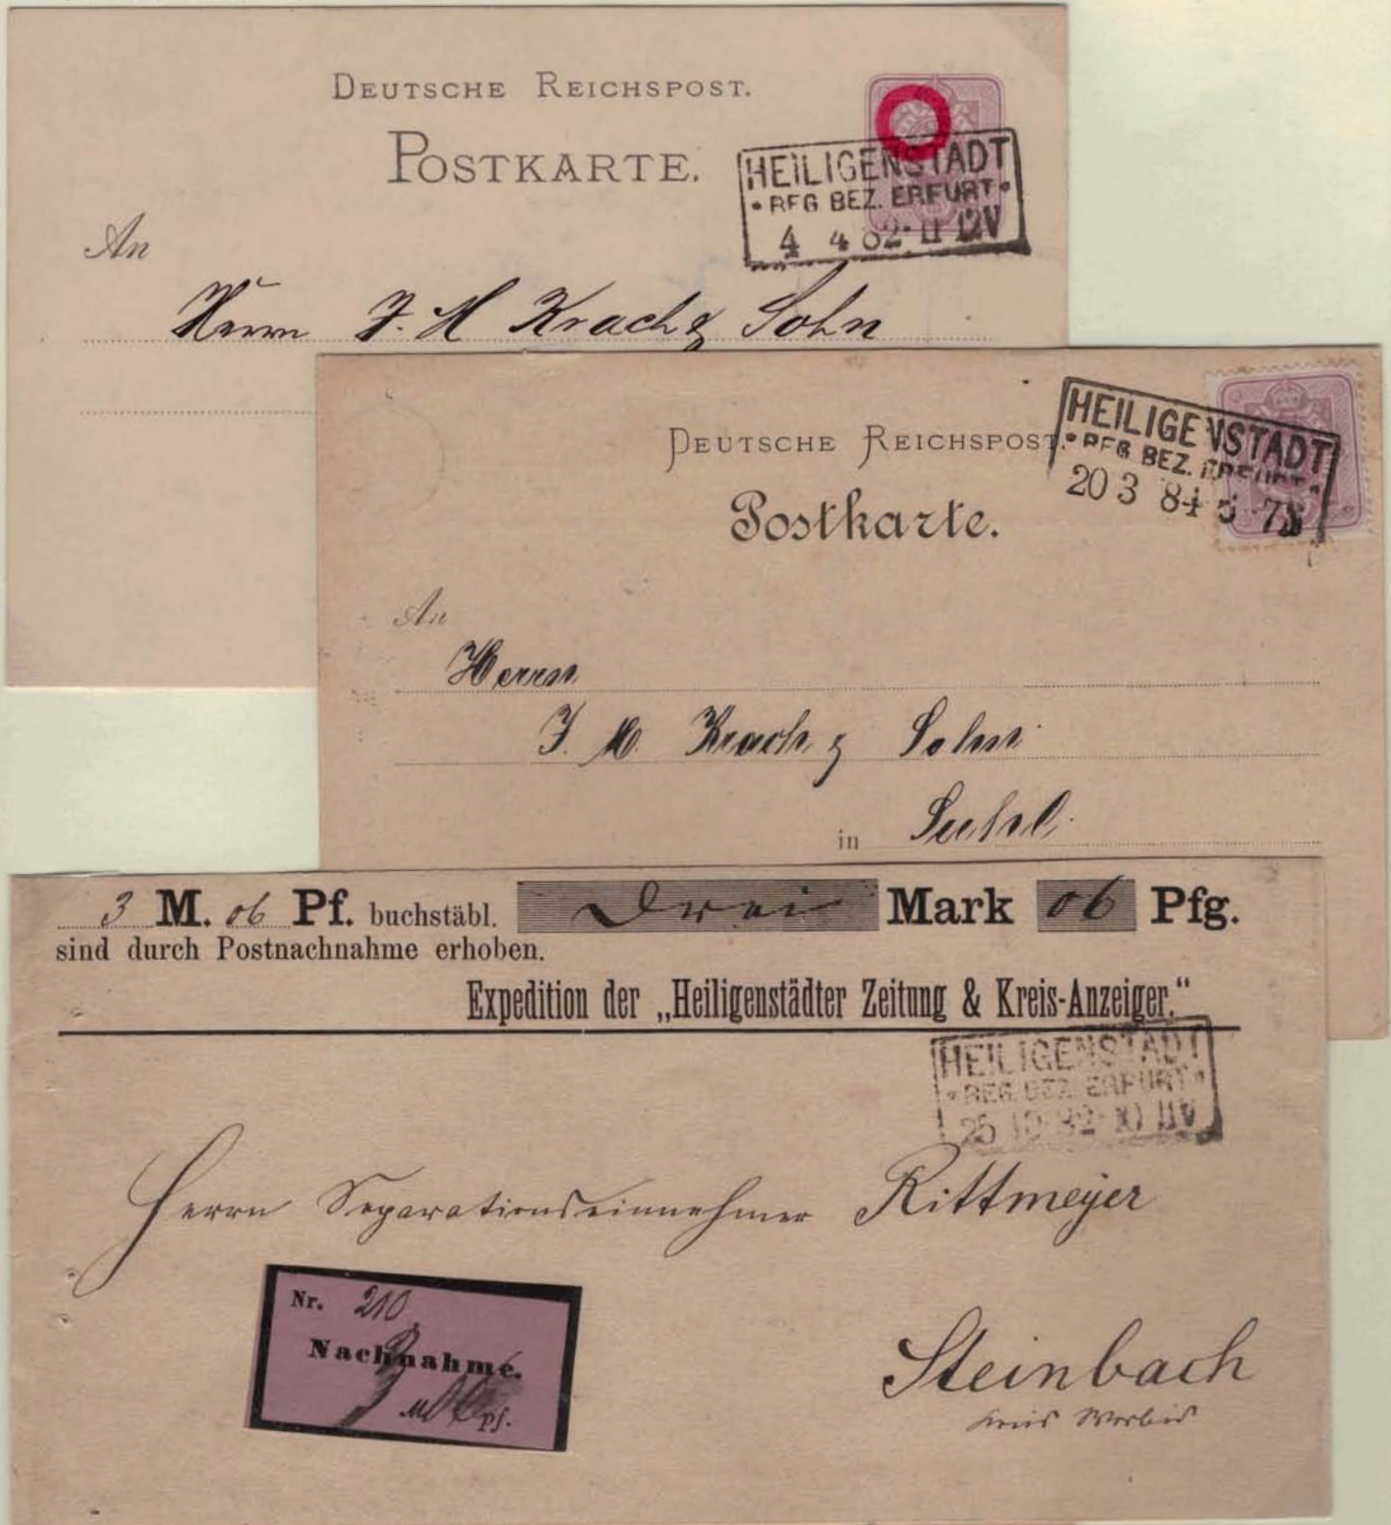 DEUTSCHE REICHSPOST.
POSTKARTE.
HEILIGENSTADT
• REG. BEZ. ERFURT •
4 4 82 11 12V
An
Herrn J. H Krach & Sohn
DEUTSCHE REICHSPOST.
Postkarte.
HEILIGENSTADT
• REG BEZ. ERFURT •
20 3 84 5-7N
An
Herrn
J. H. Krach & Sohn
in Suhl.
3 M. 06 Pf. buchstäbl. Drei Mark 06 Pfg.
sind durch Postnachnahme erhoben.
Expedition der „Heiligenstädter Zeitung & Kreis-Anzeiger.“
HEILIGENSTADT
• REG. BEZ. ERFURT •
25 10 82 10 11V
Herrn Separationseinnehmer Rittmeyer
Nr. 210
Nachnahme.
3 M 06 pf.
Steinbach
Kreis Worbis